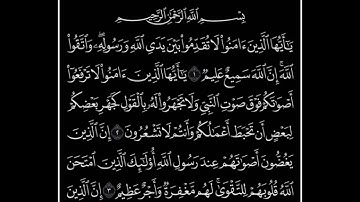 بِسْمِ ٱللَّهِ ٱلرَّحْمَٰنِ ٱلرَّحِيمِ
يَٰٓأَيُّهَا ٱلَّذِينَ ءَامَنُوا۟ لَا تُقَدِّمُوا۟ بَيْنَ يَدَىِ ٱللَّهِ وَرَسُولِهِۦ ۖ وَٱتَّقُوا۟
ٱللَّهَ ۚ إِنَّ ٱللَّهَ سَمِيعٌ عَلِيمٌ ١ يَٰٓأَيُّهَا ٱلَّذِينَ ءَامَنُوا۟ لَا تَرْفَعُوٓا۟
أَصْوَٰتَكُمْ فَوْقَ صَوْتِ ٱلنَّبِىِّ وَلَا تَجْهَرُوا۟ لَهُۥ بِٱلْقَوْلِ كَجَهْرِ بَعْضِكُمْ
لِبَعْضٍ أَن تَحْبَطَ أَعْمَٰلُكُمْ وَأَنتُمْ لَا تَشْعُرُونَ ٢ إِنَّ ٱلَّذِينَ
يَغُضُّونَ أَصْوَٰتَهُمْ عِندَ رَسُولِ ٱللَّهِ أُو۟لَٰٓئِكَ ٱلَّذِينَ ٱمْتَحَنَ
ٱللَّهُ قُلُوبَهُمْ لِلتَّقْوَىٰ ۚ لَهُم مَّغْفِرَةٌ وَأَجْرٌ عَظِيمٌ ٣ إِنَّ ٱلَّذِينَ